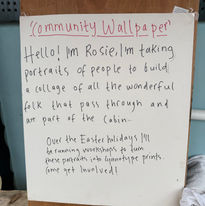 "Community Wallpaper"
Hello! I'm Rosie, I'm taking
portraits of people to build
a collage of all the wonderful
folk that pass through and
are part of the Cabin.
Over the Easter holidays I'll
be running workshops to turn
these portraits into Cyanotype prints.
Come get Involved!